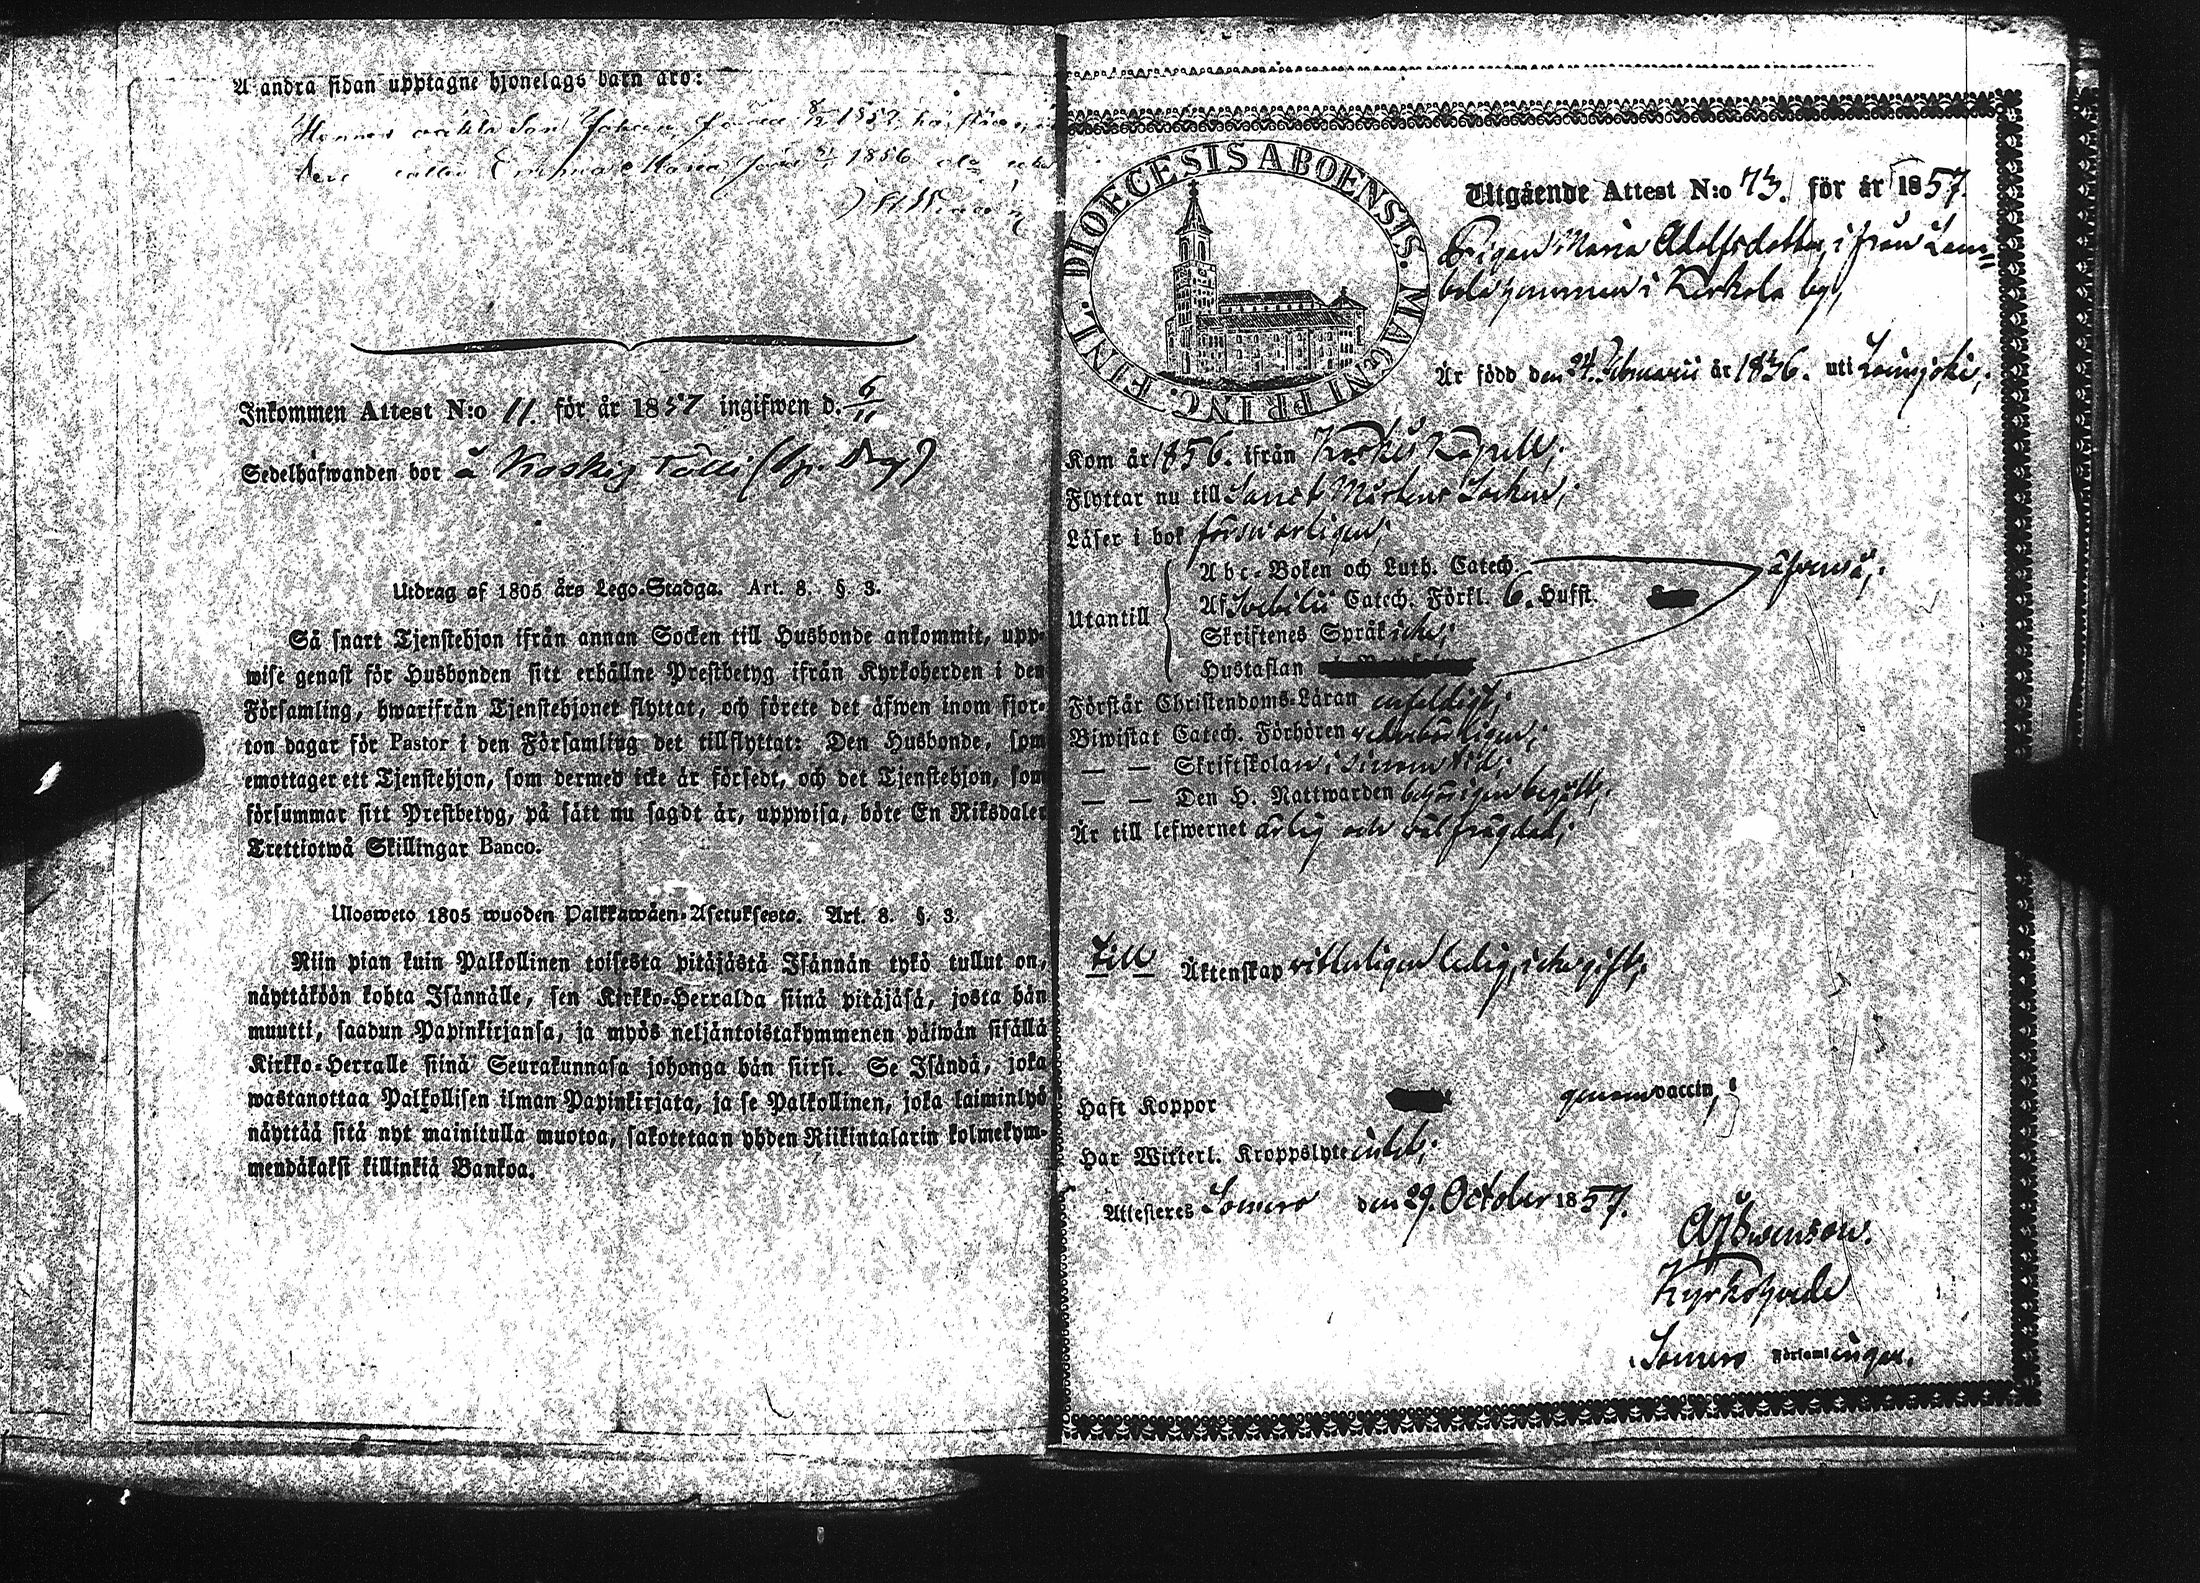 A andra sidan upptagne hjonelags barn äro:
Hennes oäkta Son Johan, född 1852,
Emma Maria, född 1856
Inkommen Attest N:o 11. för år 1857 ingifwen d. 6/11
Sedelhafwanden bor å Koskis Tälli
Utdrag af 1805 års Lego-Stadga. Art. 8. § 3.
Så snart Tjenstehjon ifrån annan Socken till Husbonde ankommit, upp-
wise genast för Husbonden sitt erhållne Prestbetyg ifrån Kyrkoherden i den
Församling, hwarifrån Tjenstehjonet flyttat, och förete det äfwen inom fjor-
ton dagar för Pastor i den Församling det tillflyttat: Den Husbonde, som
emottager ett Tjenstehjon, som dermed icke är försedt, och det Tjenstehjon, som
försummar sitt Prestbetyg, på sätt nu sagdt är, uppwisa, böte En Riksdaler
Trettiotwå Skillingar Banco.
Ulosweto 1805 wuoden Palkkawäen-Asetuksesta. Art. 8. §. 3.
Niin pian kuin Palkollinen toisesta pitäjästä Isännän tykö tullut on,
näyttäköön kohta Isännälle, sen Kirkko-Herralda siinä pitäjäsä, josta hän
muutti, saadun Papinkirjansa, ja myös neljäntoistakymmenen päiwän sisällä
Kirkko-Herralle siinä Seurakunnasa johonga hän siirsi. Se Isändä, joka
wastanottaa Palkollisen ilman Papinkirjata, ja se Palkollinen, joka laiminlyö
näyttää sitä nyt mainitulla muotoa, sakotetaan yhden Riikintalarin kolmekym-
mendäkaksi killinkiä Bankoa.
DIOECESIS ABOENSIS. MAGNI PRINC. FINL.
Utgående Attest N:o 73. för år 1857.
Pigan Maria Adolfsdotter, ifrån Lam-
bola hemman i Kerkola by,
Är född den 24. Februarii år 1836. uti Loimjoki;
Kom år 1856. ifrån Koskis Kapell;
Flyttar nu till Sanct Mårtens Socken;
Läser i bok försvarligen;
Utantill
Abc-Boken och Luth. Catech. äfvenså;
Af Svebilii Catech. Förkl. 6. Hufst.
Skriftenes Språk icke;
Hustaflan
Förstår Christendoms-Läran enfaldigt;
Biwistat Catech. Förhören vederbörligen;
— — Skriftskolan i sinom tid;
— — Den H. Nattwarden behörigen begått;
Är till lefwernet ärlig och välfrägdad;
Till Äktenskap vitterligen ledig, icke gift;
Haft Koppor genom vaccin;
Har Witterl. Kroppslyte intet;
Attesteres Somero den 29. October 1857.
Swenson.
Kyrkoherde
i Somero Församlingar.